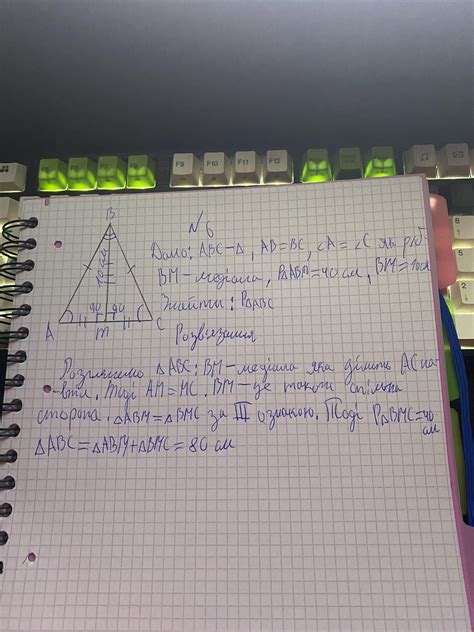 F9 F10 F11 F12
№6
B
Дано: ABC-Δ, AB=BC, ∠A=∠C як р/б
10см
BM-медіана, PΔABM=40см, BM=10см
Знайти: PΔABC
90 90
A M C
Розв'язання
Розглянемо ΔABC: BM-медіана яка ділить AC на-
впіл. Тоді AM=MC. BM-це також спільна
сторона. ΔABM=ΔBMC за III ознакою. Тоді PΔBMC=40
см
ΔABC=ΔABM+ΔBMC=80 см